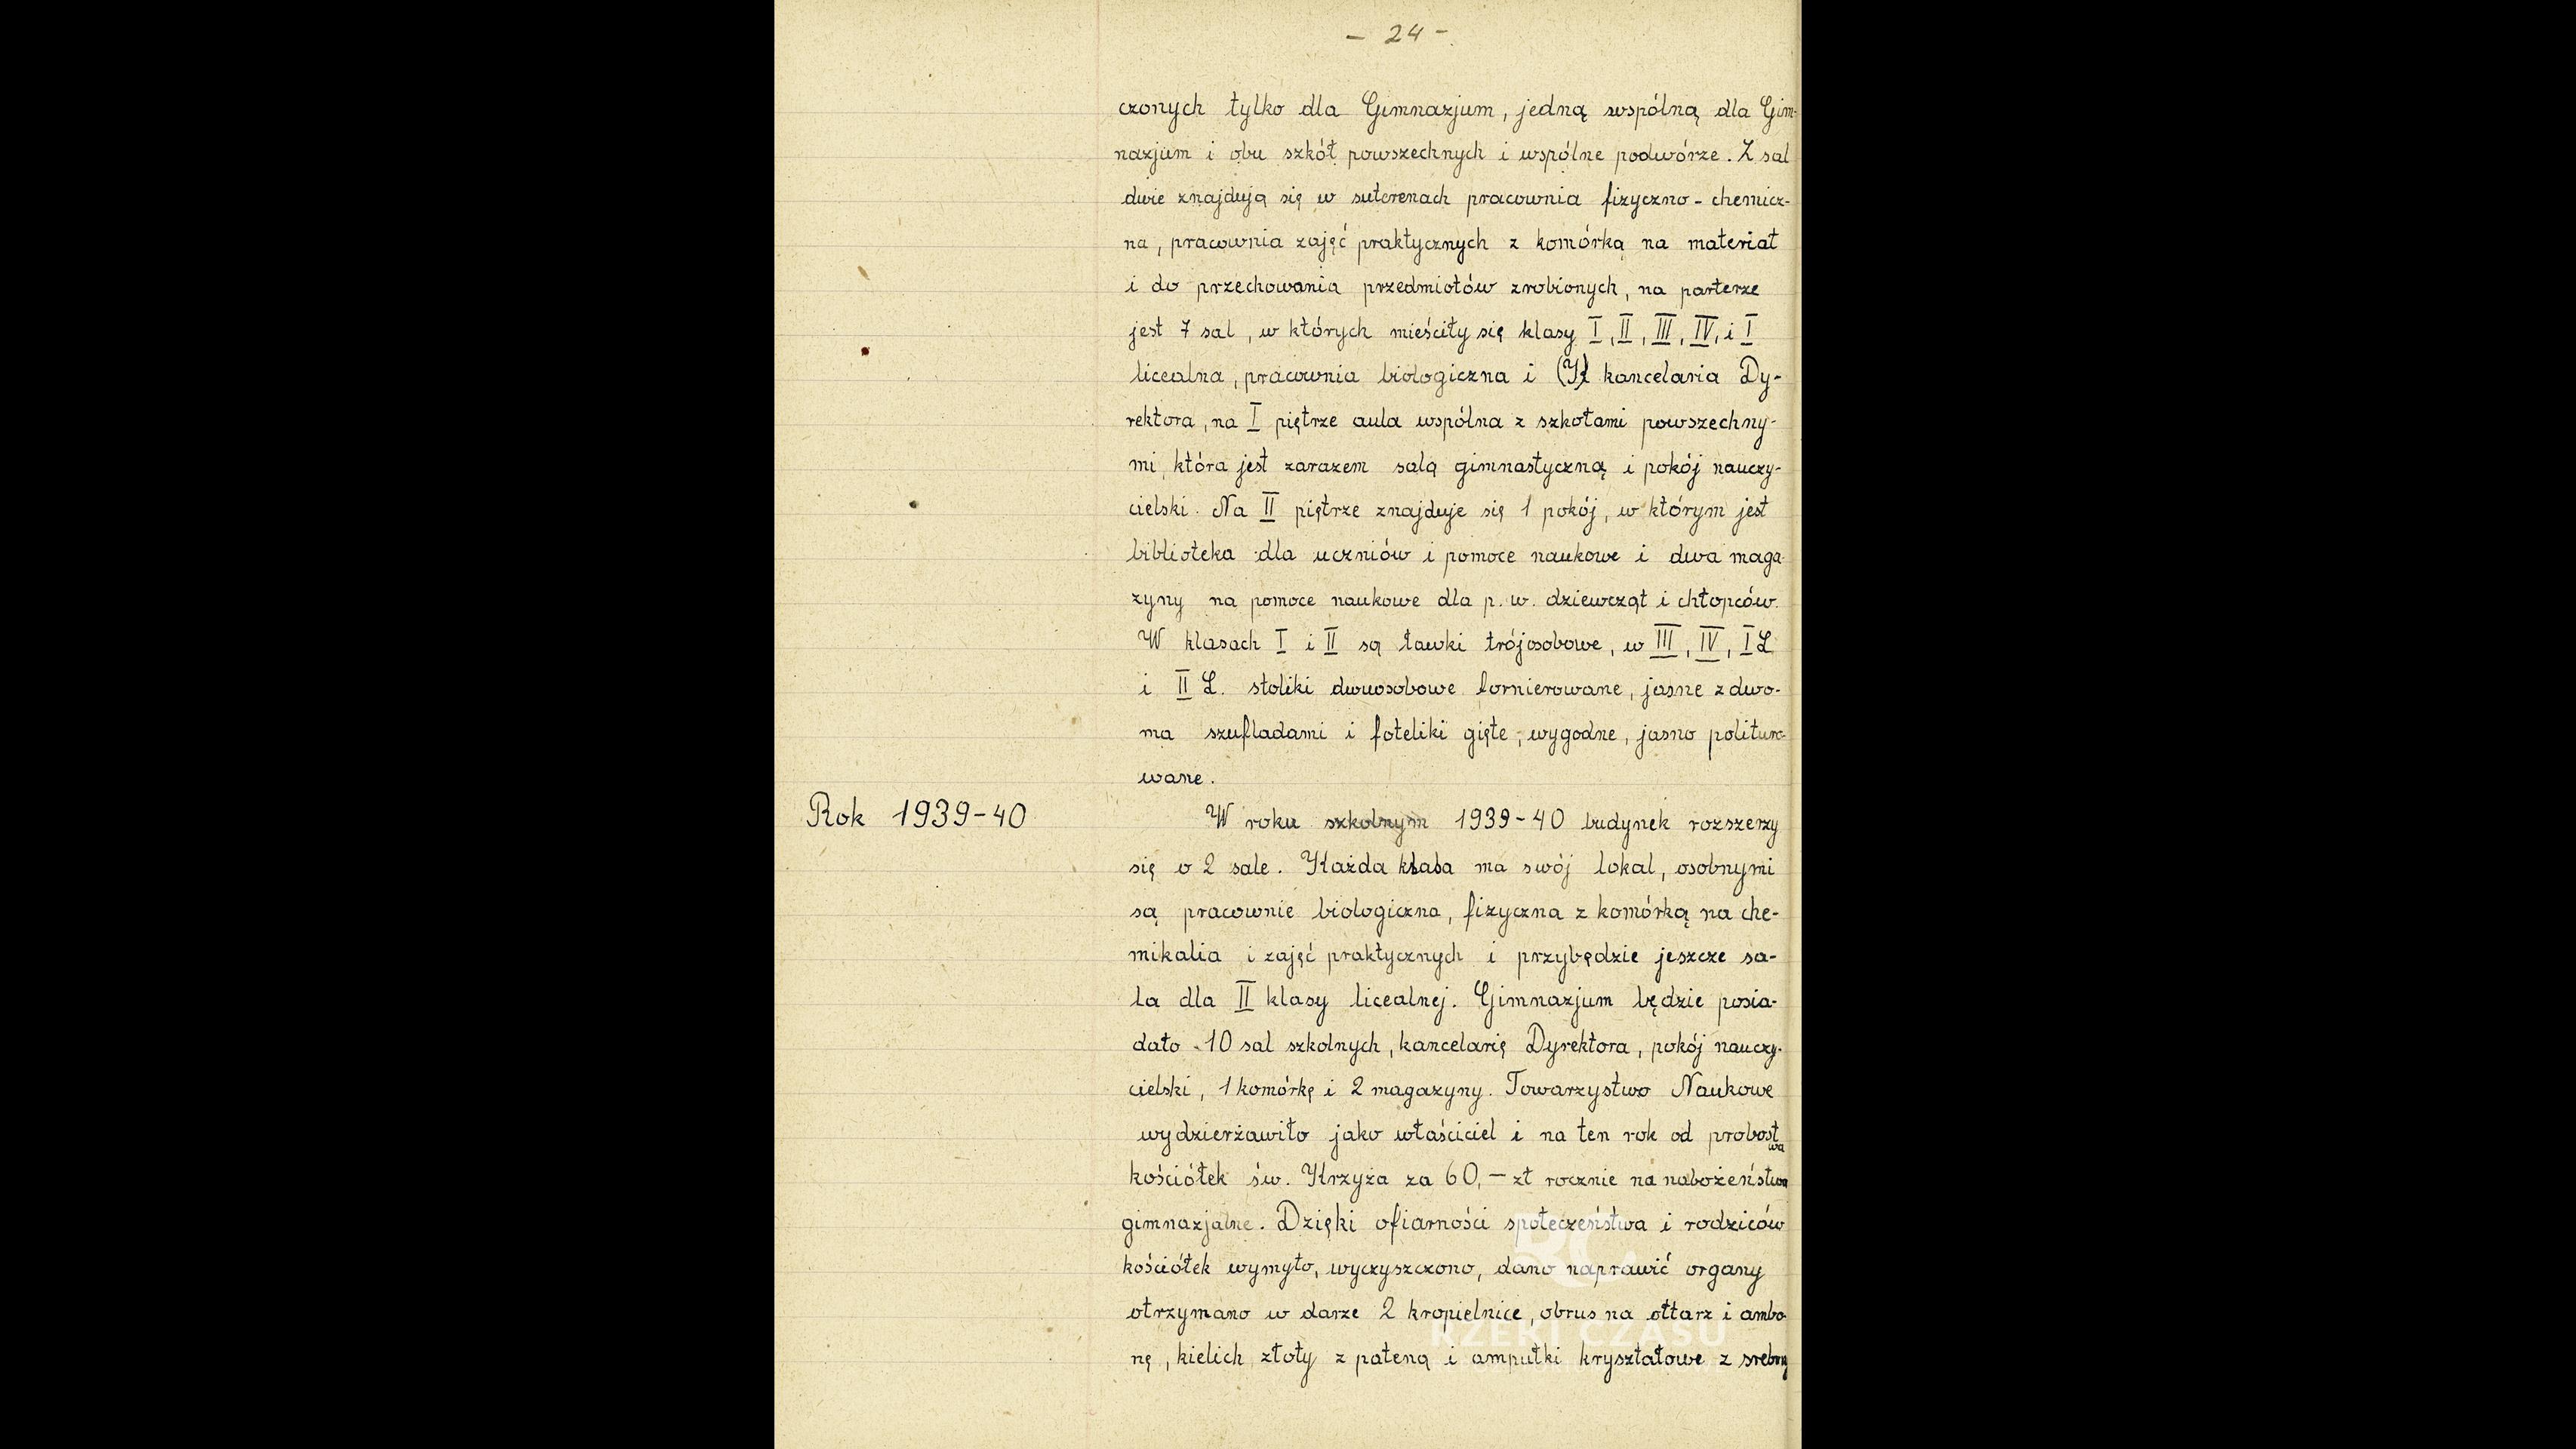 - 24 -
czonych tylko dla Gimnazjum, jedną wspólną dla Gim-
nazjum i obu szkół powszechnych i wspólne podwórze. Z sal
dwie znajdują się w suterenach pracownia fizyczno - chemicz-
na, pracownia zajęć praktycznych z komórką na materiał
i do przechowania przedmiotów zrobionych, na parterze
jest 7 sal, w których mieściły się klasy I, II, III, IV, i I
licealna, pracownia biologiczna i (K) kancelaria Dy-
rektora, na I piętrze aula wspólna z szkołami powszechny-
mi, która jest zarazem salą gimnastyczną i pokój nauczy-
cielski. Na II piętrze znajduje się 1 pokój, w którym jest
biblioteka dla uczniów i pomoce naukowe i dwa maga-
zyny na pomoce naukowe dla p. w. dziewcząt i chłopców.
W klasach I i II są ławki trójosobowe, w III, IV, I L
i II L. stoliki dwuosobowe fornierowane, jasne z dwo-
ma szufladami i foteliki gięte, wygodne, jasno polituro-
wane.
Rok 1939-40
W roku szkolnym 1939-40 budynek rozszerzy
się o 2 sale. Każda klasa ma swój lokal, osobnymi
są pracownie biologiczna, fizyczna z komórką na che-
mikalia i zajęć praktycznych i przybędzie jeszcze sa-
la dla II klasy licealnej. Gimnazjum będzie posia-
dało 10 sal szkolnych, kancelarię Dyrektora, pokój nauczy-
cielski, 1 komórkę i 2 magazyny. Towarzystwo Naukowe
wydzierżawiło jako właściciel i na ten rok od probostwa
kościółek św. Krzyża za 60,- zł rocznie na nabożeństwa
gimnazjalne. Dzięki ofiarności społeczeństwa i rodziców
kościółek wymyto, wyczyszczono, dano naprawić organy
otrzymano w darze 2 kropielnice, obrus na ołtarz i ambo-
nę, kielich złoty z pateną i ampułki kryształowe z srebrny
RC
RZEKI CZASU